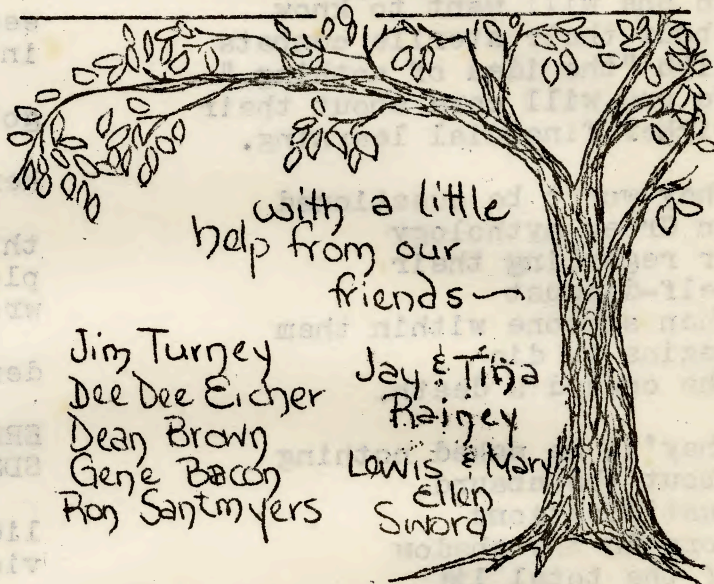 with a little
help from our
friends—
Jim Turney
Dee Dee Eicher
Dean Brown
Gene Bacon
Ron Santmyers
Jay & Tina
Rainey
Lewis & Mary
Ellen
Sword